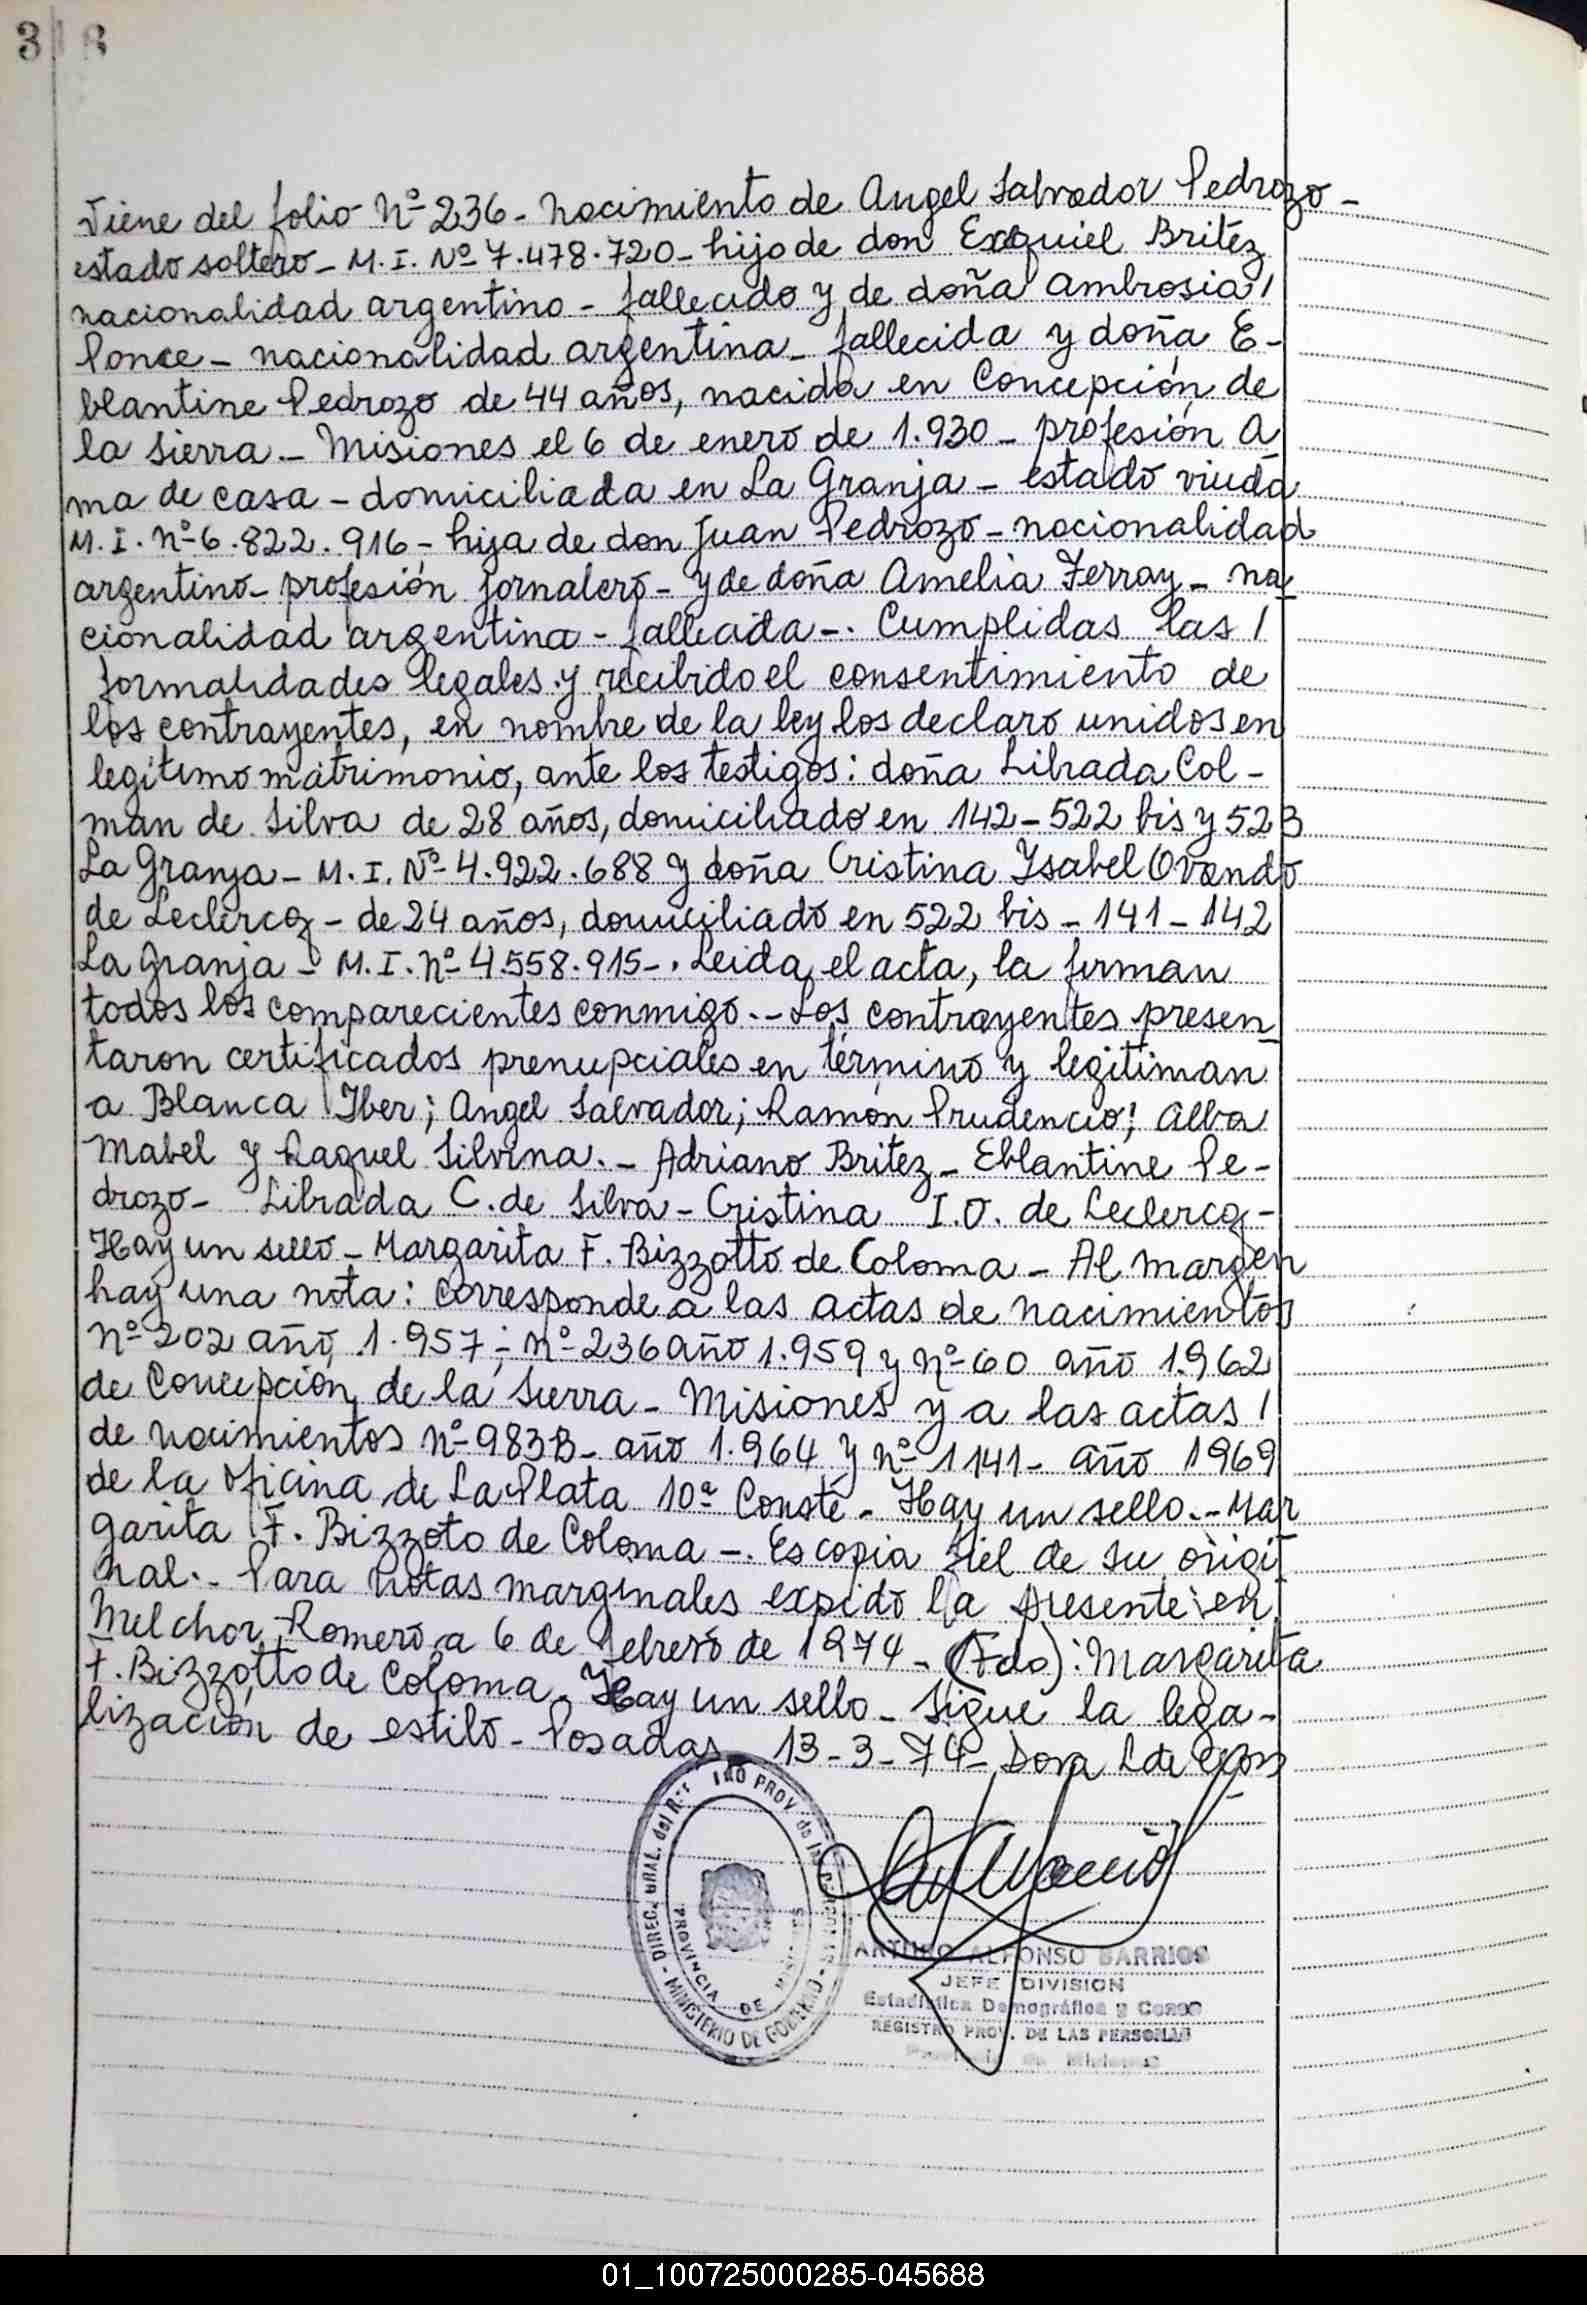 3
Viene del folio Nº 236 - Nacimiento de Angel Salvador Pedrozo -
estado soltero - M.I. Nº 7.478.720 - hijo de don Exequiel Britez
nacionalidad argentino - fallecido y de doña Ambrosia /
Ponce - nacionalidad argentina - fallecida y doña E-
blantine Pedrozo de 44 años, nacida en Concepción de
la Sierra. - Misiones el 6 de enero de 1.930 - profesión A
ma de casa - domiciliada en La Granja - estado viuda
M.I. Nº 6.822.916 - hija de don Juan Pedrozo - nacionalidad
argentino - profesión jornalero - y de doña Amelia Ferray - na
cionalidad argentina - fallecida -. Cumplidas las /
formalidades legales y recibido el consentimiento de
los contrayentes, en nombre de la ley los declaro unidos en
legitimo matrimonio, ante los testigos: doña Librada Col-
man de Silva de 28 años, domiciliado en 142 - 522 bis y 523
La Granja - M.I. Nº 4.922.688 y doña Cristina Ysabel Ovando
de Leclercq - de 24 años, domiciliado en 522 bis - 141 - 142
La Granja - M.I. Nº 4.558.915 -. Leida el acta, la firman
todos los comparecientes conmigo. - Los contrayentes presen
taron certificados prenupciales en término y legitiman
a Blanca Iber; Angel Salvador; Ramón Prudencio; Alba
Mabel y Raquel Silvina. - Adriano Britez - Eblantine Pe-
drozo - Librada C. de Silva - Cristina I.O. de Leclercq -
Hay un sello - Margarita F. Bizzotto de Coloma - Al margen
hay una nota: Corresponde a las actas de nacimientos
Nº 202 año 1.957; Nº 236 año 1.959 y Nº 60 año 1.962
de Concepción de la Sierra - Misiones y a las actas /
de nacimientos Nº 983B - año 1.964 y Nº 1141 - año 1969
de la oficina de La Plata 10ª Consté - Hay un sello. - Mar
garita F. Bizzoto de Coloma -. Es copia fiel de su origi
nal. - Para notas marginales expido la presente en
Melchor Romero a 6 de febrero de 1974 - (Fdo): Margarita
F. Bizzotto de Coloma. Hay un sello - Sigue la lega-
lización de estilo - Posadas 13-3-74 - Dora L de
DIREC. GRAL. del PROV. de las
MINISTERIO DE GOBIERNO
PROVINCIA DE MISIONES
ARTURO ALFONSO BARRIOS
JEFE DIVISION
Estadística Demográfica y Censo
REGISTRO PROV. DE LAS PERSONAS
Provincia de Misiones
01_100725000285-045688